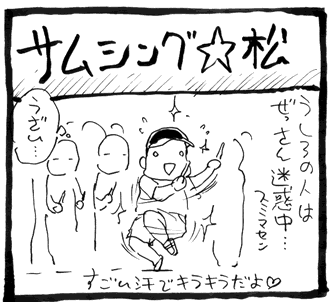 サムシング☆松
うしろの人は
ぜっさん迷惑中…
スミマセン
うざい…
すごい汗でキラキラだよ♡